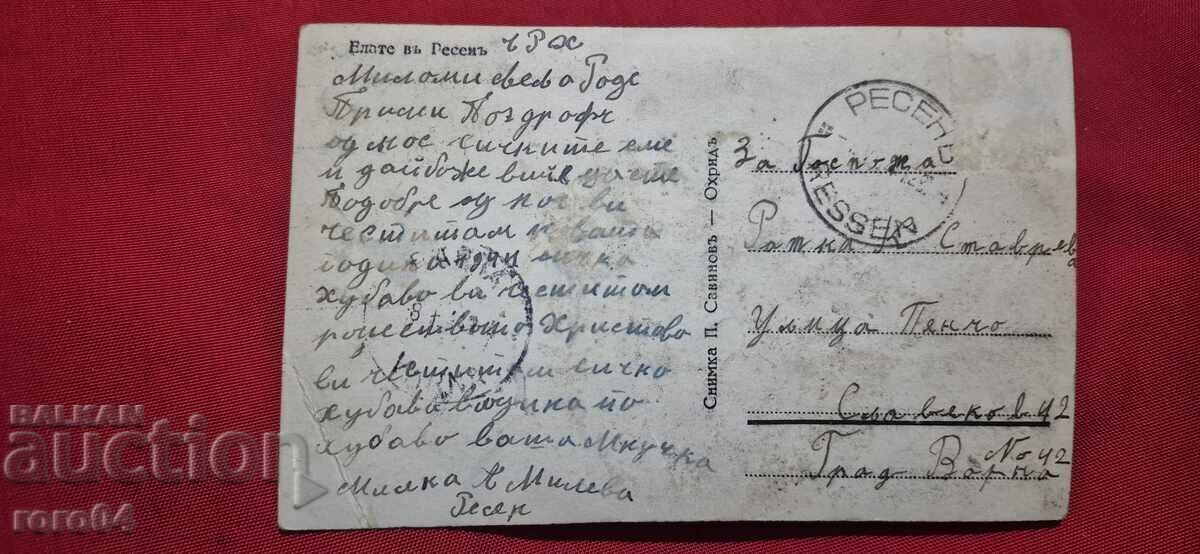 Елате въ Ресенъ
ч Рож
Миломи свека Годе
Прими Поздрофч
од нос сичните сме
и дай боже вийе усте
Подобре од нос ви
честитам новата
година 1941 сичко
хубаво ви честитом
рошеството Христово
ви честитам сичко
хубаво
хубаво вата Мичка
Милка Милева
Ресен
Снимка П. Савиновъ — Охридъ
РЕСЕНЪ
RESSEN
За Госпожа
Ратка Ставрева
Улица Пянчо
Славековц 2
No 42
Град Варна
BALKAN
auction
roro84